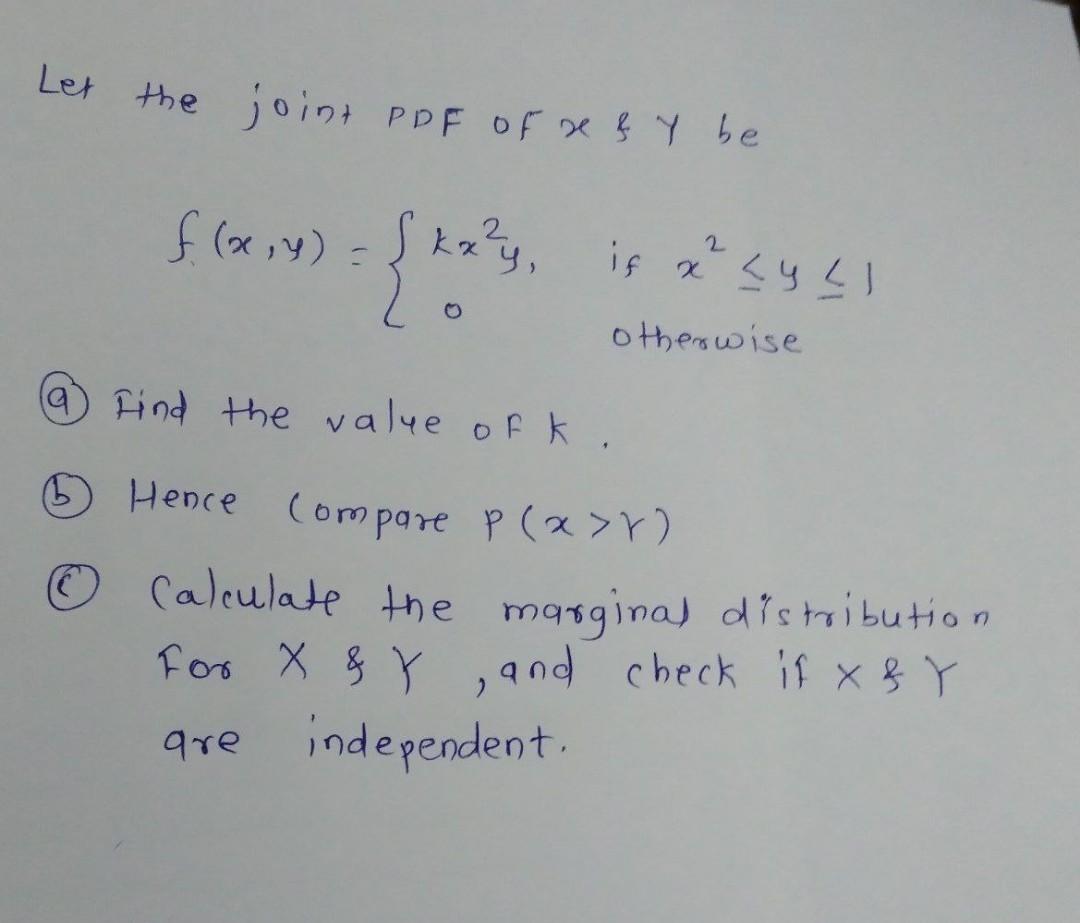 Let the joint PDF of x & Y be
f(x,y) = { kx²y, if x² ≤ y ≤ 1
0 otherwise
(a) Find the value of k.
(b) Hence compare P(x>Y)
(c) Calculate the marginal distribution
For X & Y, and check if X & Y
are independent.